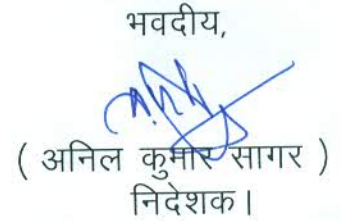 भवदीय,
( अनिल कुमार सागर )
निदेशक।